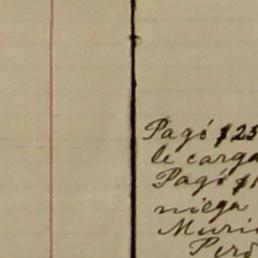 Pagó $25
le carga
Pagó $1
niega
Murió
Perd